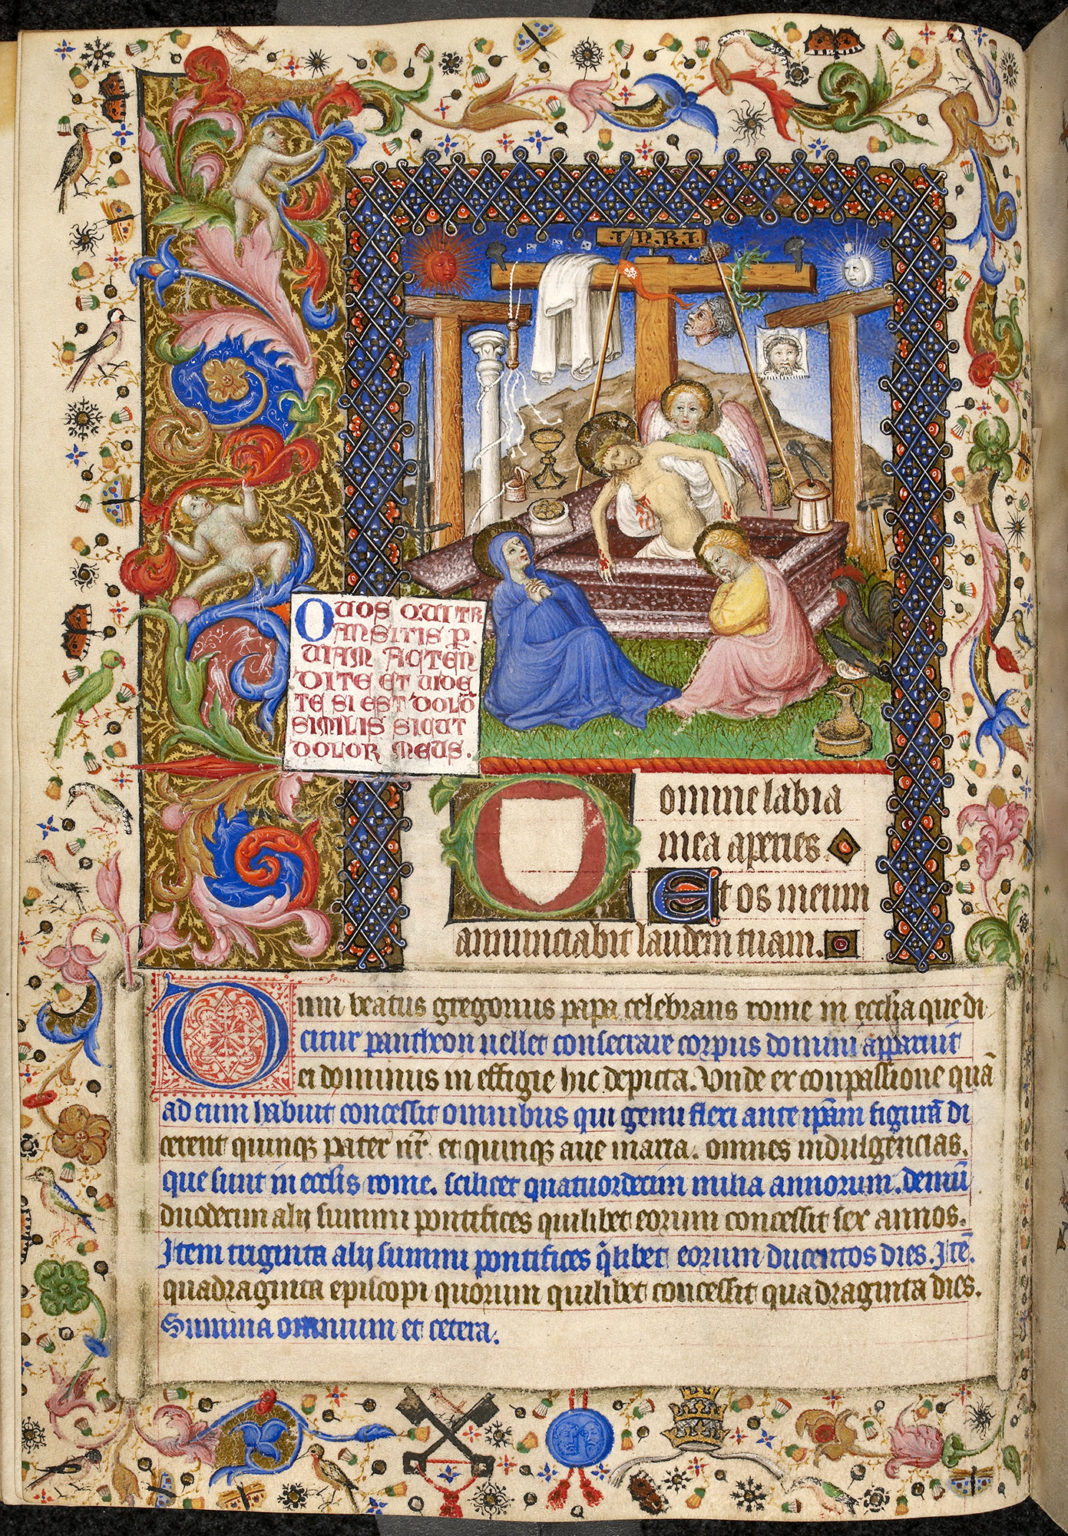 INRI
O UOS QUI TR
ANSITIS P.
UIAM AQTEN
DITE ET UIDE
TE SI EST DOLO
SIMILIS SICUT
DOLOR MEUS.
Domine labia
mea aperies.
Et os meum
annunciabit laudem tuam.
Dum beatus gregorius papa celebrans rome in ecclīa que di
citur pantheon uellet consecrare corpus domini apparuit
ei dominus in effigie hic depicta. Vnde ex conpassione quā
ad eum habuit concessit omnibus qui genu flexi ante ip̄am figurā di
cerent quinqꝫ pater nr̄. et quinqꝫ aue maria. omnes indulgencias.
que sunt in ecclīs rome. scilicet quatuordecim milia annorum. demū
duodecim alij summi pontifices quilibet eorum concessit sex annos.
Item triginta alij summi pontifices q̄libet eorum ducentos dies. Itē.
quadraginta episcopi quorum quilibet concessit quadraginta dies.
Summa omnium et cetera.